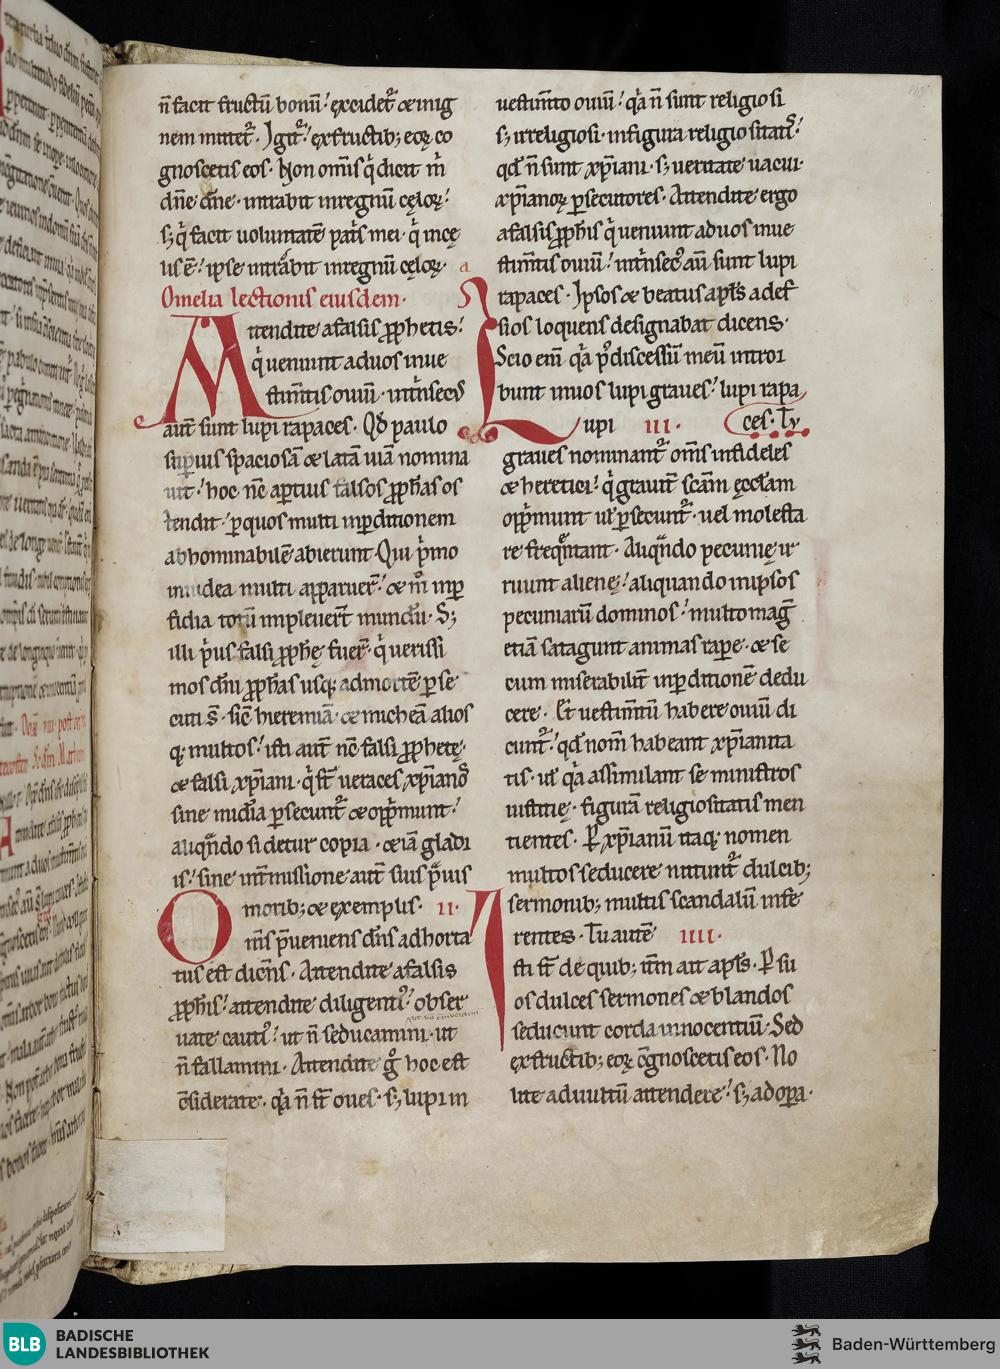 n̄ facit fructū bonū! excidet᷑ & in ig
nem mittet᷑. Igit᷑! ex fructib; eoꝝ co
gnoscetis eos. Non om̄is q̇ dicit m̄
dn̄e dn̄e. intrabit in regnū cęloꝝ!
s; q̇ facit uoluntatē pat̄s mei. q̇ in cę
lis ē! ipse intrabit in regnū cęloꝝ.
Omelia lectionis eiusdem.
Attendite a falsis ꝓphetis!
q̇ ueniunt ad uos in ue
stim̄tis ouiū. int̄nsecꝰ
aut̄ sunt lupi rapaces. Qd̄ paulo
sup̄ius spaciosā & latā uiā nomina
uit! hoc nc̄ ap̄tius falsos ꝓph̄as os
tendit! ꝑ quos multi in ꝑditionem
abhominabilē abierunt. Qui p̄mo
in iudea multi apparuer̄! & m̊ in ꝑ
fidia totū impleuer̄t mundū. S;
illi p̄us falsi ꝓph̄ę fuer̄. q̇ uerissi
mos dn̄i ꝓph̄as usq; ad mortē ꝑse
cuti s̄. sic̄ hieremiā. & micheā alios
q; multos! isti aut̄ nc̄ falsi ꝓphetę.
& falsi xp̄iani. q̇ s̄t ueraces xp̄ianos
sine inidia ꝑsecunt᷑ & opp̄munt!
aliqn̄do si detur copia. & iā gladi
is! sine int̄missione aut̄ suis p̄uis
moribꝫ & exemplis. II.
Om̄s p̄ueniens dn̄s adhorta
tus est dicen̄s. Attendite a falsis
ꝓph̄is! attendite diligent᷑! obser
uate caut᷑! ut n̄ seducamini. ut
n̄ fallamini. Attendite g̊ hoc est
c̄siderate. q̇a n̄ s̄t oues. s; lupi in
uestim̄to ouiū! q̇a n̄ sunt religiosi
s; irreligiosi. in figura religiositatis!
qd̄ n̄ sunt xp̄iani. s; ueritate uacui.
xp̄ianoꝝ ꝑsecutores. Attendite ergo
a falsis ꝓph̄is q̇ ueniunt ad uos in ue
stim̄tis ouiū! int̄nsecꝰ aū sunt lupi
rapaces. Ipsos & beatus apl̄s ad ef
sios loquens designabat dicens.
Scio eni̅ q̇a p᷒ discessū meū introi
bunt in uos lupi graues! lupi rapa
ces. Lv
Lupi III.
graues nominant᷑ om̄s infideles
& heretici! q̇ grauit̄ scām ęccl̄am
opp̄munt uł ꝑsecunt᷑. uel molesta
re freq̄ntant. Aliqn̄do pecunię ir
ruunt alienę! aliquando in ipsos
pecuniarū dominos! multo mag̅
etiā satagunt animas rape. & se
cum miserabilit̄ in ꝑditionē dedu
cere. Et uestim̄tū habere ouiū di
cunt᷑! qd̄ nom̄ habeant xp̄ianita
tis. uł q̇a assimilant se ministros
iustitię. figurā religiositatis men
tientes. P xp̄ianū itaq; nomen
multos seducere nitunt᷑ dulcib;
sermonib; multis scandalū infe
rentes. Tu autē IIII.
Isti s̄t de quib; itm̄ ait apl̄s. P su
os dulces sermones & blandos
seducunt corda innocentiū. Sed
ex fructib; eoꝝ c̄gnoscetis eos. No
lite ad uultū attendere! s; ad opa.
BLB BADISCHE LANDESBIBLIOTHEK
Baden-Württemberg